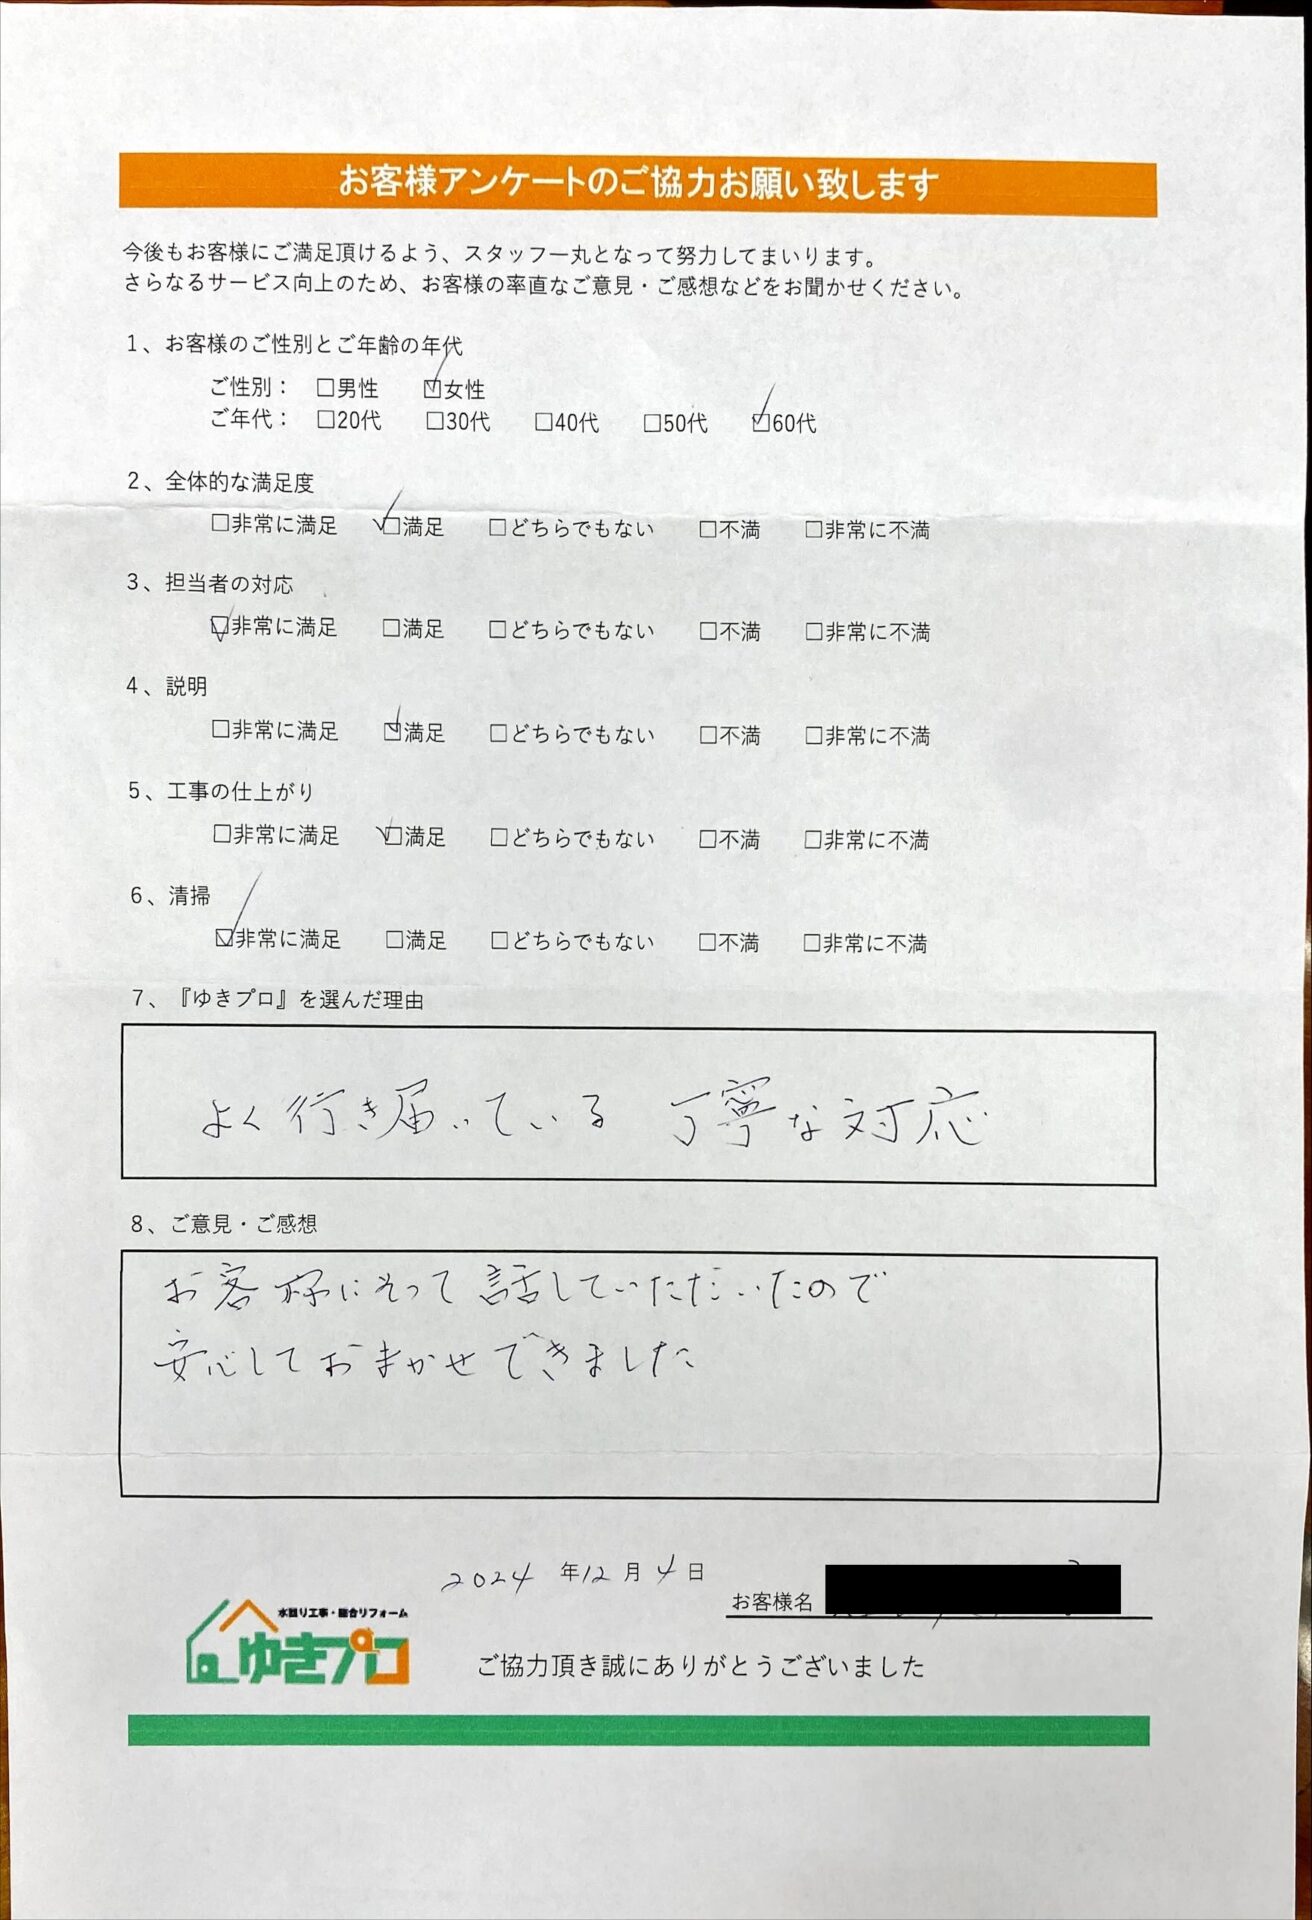 お客様アンケートのご協力お願い致します
今後もお客様にご満足頂けるよう、スタッフ一丸となって努力してまいります。
さらなるサービス向上のため、お客様の率直なご意見・ご感想などをお聞かせください。
1、お客様のご性別とご年齢の年代
ご性別： □男性 ☑女性
ご年代： □20代 □30代 □40代 □50代 ☑60代
2、全体的な満足度
□非常に満足 ☑満足 □どちらでもない □不満 □非常に不満
3、担当者の対応
☑非常に満足 □満足 □どちらでもない □不満 □非常に不満
4、説明
□非常に満足 ☑満足 □どちらでもない □不満 □非常に不満
5、工事の仕上がり
□非常に満足 ☑満足 □どちらでもない □不満 □非常に不満
6、清掃
☑非常に満足 □満足 □どちらでもない □不満 □非常に不満
7、『ゆきプロ』を選んだ理由
よく行き届いている 丁寧な対応
8、ご意見・ご感想
お客様にそって話していただいたので
安心しておまかせできました
2024 年12月4日
お客様名
水回り工事・総合リフォーム
ゆきプロ
ご協力頂き誠にありがとうございました